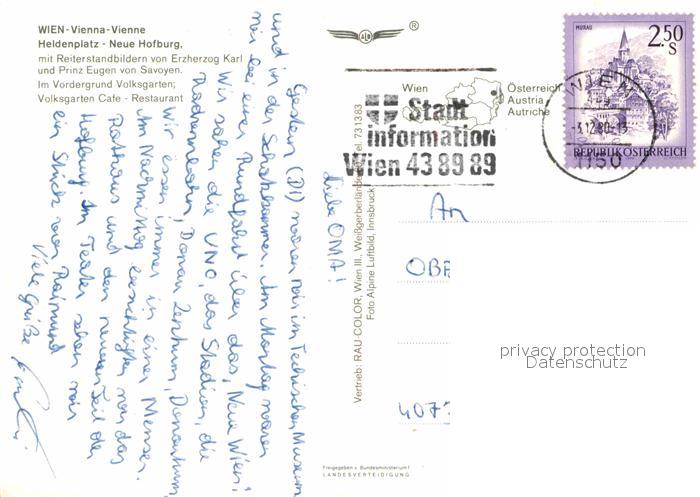 WIEN-Vienna-Vienne
Heldenplatz - Neue Hofburg,
mit Reiterstandbildern von Erzherzog Karl
und Prinz Eugen von Savoyen.
Im Vordergrund Volksgarten;
Volksgarten Cafe - Restaurant
®
Wien
Österreich
Austria
Autriche
Stadt
information
Wien 43 89 89
MURAU
2.50
S
REPUBLIK ÖSTERREICH
WIEN
-3.12.80-13
1150
Liebe OMA!
Gestern (DI) waren wir im Technischen Museum
und in der Schatzkammer. Am Montag waren
wir bei einer Rundfahrt über das "Neue Wien".
Wir sahen die UNO, das Stadion, die
Donau Zentrum, Donauturm,
Wir essen immer in einer Mensa.
Am Nachmittag besichtigten wir das
Rathaus und den neueren Teil der
Hofburg. Im Teater sahen wir
ein Stück von Raimund
Viele Grüße
Vertrieb: RAU-COLOR, Wien III., Weißgerberlände Tel. 73 13 83
Foto Alpine Luftbild, Innsbruck
Freigegeben v. Bundesministerium f.
LANDESVERTEIDIGUNG
An
OBE
407
privacy protection
Datenschutz